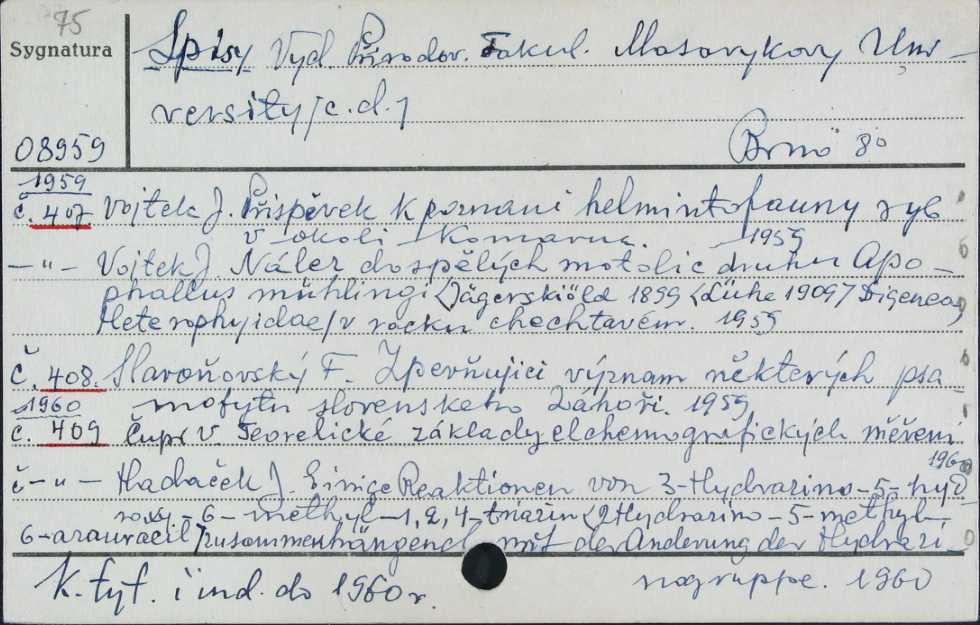 75
Sygnatura
Spisy Vyd. Přírodov. Fakul. Masarykovy Uni-
versity /c.d./
08959
Brno 80
1959
č. 407 Vojtek J. Příspěvek k poznani helmintofauny ryb
v okoli Komarna. 1959
— " — Vojtek J. Nález dospělých motolic druhu Apo-
phallus mühlingi (Jägerskiöld 1899 (Lühe 1909/ Digenea,
Heterophyidae/ v racku chechtavém. 1959
č. 408. Slavoňovský F. Zpevňujici význam některých psa-
mofytu slovenskeho Záhoři. 1959
1960
č. 409 Čupr V. Teoretické základy elchemografických měřeni
1960
č — " — Hadaček J. Einige Reaktionen von 3-Hydrazino-5-hyd
roxy-6-methyl-1,2,4-triazin (2 Hydrazino-5-methyl-
6-azauracil) zusammenhängend mit der Änderung der Hydrazi-
nogruppe. 1960
K. tyt. i ind. do 1960 r.